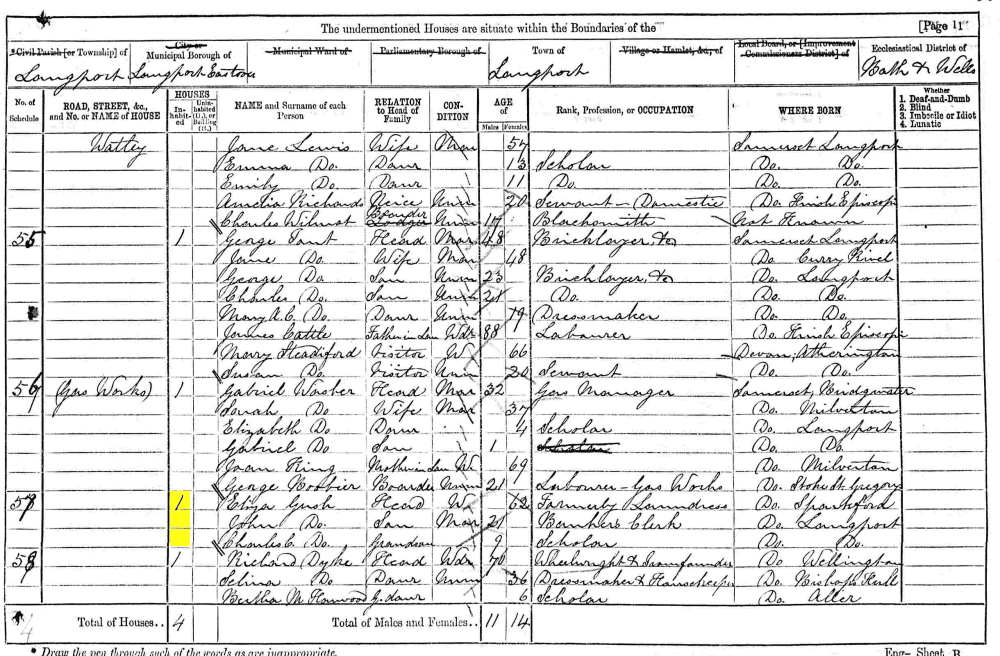 The undermentioned Houses are situate within the Boundaries of the [Page 11
Civil Parish [or Township] of City or Municipal Borough of Municipal Ward of Parliamentary Borough of Town of Village or Hamlet, &c., of Local Board, or [Improvement Commissioners District] of Ecclesiastical District of
Langport Langport Eastover Langport Bath & Wells
No. of Schedule ROAD, STREET, &c., and No. or NAME of HOUSE HOUSES Inhabited Uninhabited (U.), or Building (B.) NAME and Surname of each Person RELATION to Head of Family CONDITION AGE of Males Females Rank, Profession, or OCCUPATION WHERE BORN Whether 1. Deaf-and-Dumb 2. Blind 3. Imbecile or Idiot 4. Lunatic
Watley Jane Lewis Wife 57 Somerset Langport
Emma Do. Daur 13 Scholar Do. Do.
Emily Do. Daur 11 Do. Do. Do.
Amelia Richards Neice Unm 20 Servant - Domestic Do. Huish Episcopi
Charles Boarder Lodger Unm 17 Blacksmith Not Known
55 1 George Head Mar 48 Bricklayer &c Somerset Langport
Jane Do. Wife Mar 48 Do. Curry Rivel
George Do. Son Unm 23 Bricklayer &c Do. Langport
Charles Do. Son Unm 21 Do. Do. Do.
Mary A. C. Do. Daur Unm 19 Dressmaker Do. Do.
James Cattle Father in Law Wdr 88 Labourer Do. Huish Episcopi
Mary Steadiford Visitor W 66 Devon; Atherington
Susan Do. Visitor Unm 20 Servant Do. Do.
56 (Gas Works) 1 Gabriel Head Mar 32 Gas Manager Somerset, Bridgwater
Sarah Do Wife Mar 37 Do. Milverton
Elizabeth Do Daur 4 Scholar Do. Langport
Gabriel Do Son 1 Scholar Do. Do.
Joan King Mother in Law W 69 Do. Milverton
George Boarder Unm 21 Labourer - Gas Works Do. Stoke St Gregory
57 1 Eliza Gush Head W 62 Formerly Laundress Do. Sparkford
John Do. Son Mar 21 Bankers Clerk Do. Langport
Charles C. Do. Grandson 9 Scholar Do. Do.
58 1 Richard Dyke Head Wdr 70 Wheelwright & Ironfounder Do. Wellington
Selina Do Daur Unm 36 Dressmaker & Housekeeper Do. Bishops Hull
Bertha M Hanwood G. daur 6 Scholar Do. Aller
Total of Houses.. 4 Total of Males and Females.. 11 14
* Draw the pen through such of the words as are inappropriate. Eng- Sheet B.